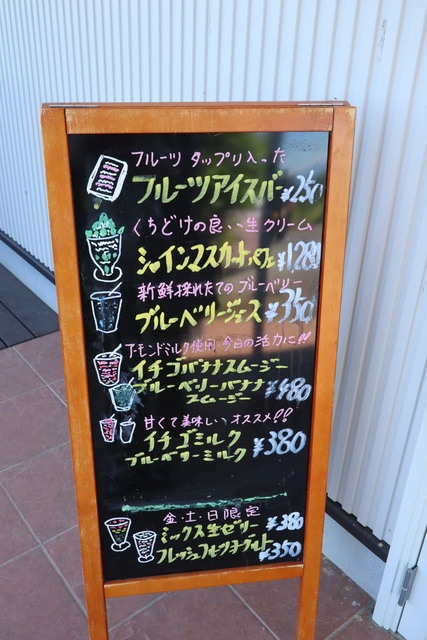 フルーツ タップリ入った
フルーツアイスバー ¥250
くちどけの良い生クリーム
シャインマスカートパフェ ¥1,280
新鮮採れたてのブルーベリー
ブルーベリージュース ¥350
アーモンドミルク使用 今日の活力に!!
イチゴバナナスムージー
ブルーベリーバナナ
スムージー ¥480
甘くて美味しい オススメ!!
イチゴミルク
ブルーベリーミルク ¥380
金・土・日限定
ミックス生ゼリー ¥380
フレッシュフルーツヨーグルト ¥350